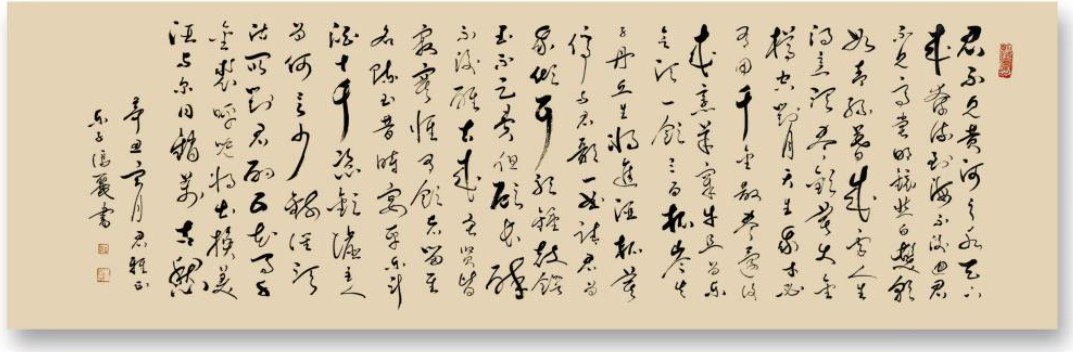 君不見黃河之水天上
來奔流到海不復回君
不見高堂明鏡悲白髮朝
如青絲暮成雪人生
得意須盡歡莫使金
樽空對月天生我材必
有用千金散盡還復
來烹羊宰牛且為樂
會須一飲三百杯岑夫
子丹丘生將進酒杯莫
停與君歌一曲請君為
我傾耳聽鐘鼓饌
玉不足貴但願長醉
不復醒古來聖賢皆
寂寞惟有飲者留其
名陳王昔時宴平樂斗
酒十千恣歡謔主人
為何言少錢徑須
沽取對君酌五花馬千
金裘呼兒將出換美
酒與爾同銷萬古愁
辛丑月君雅正
書